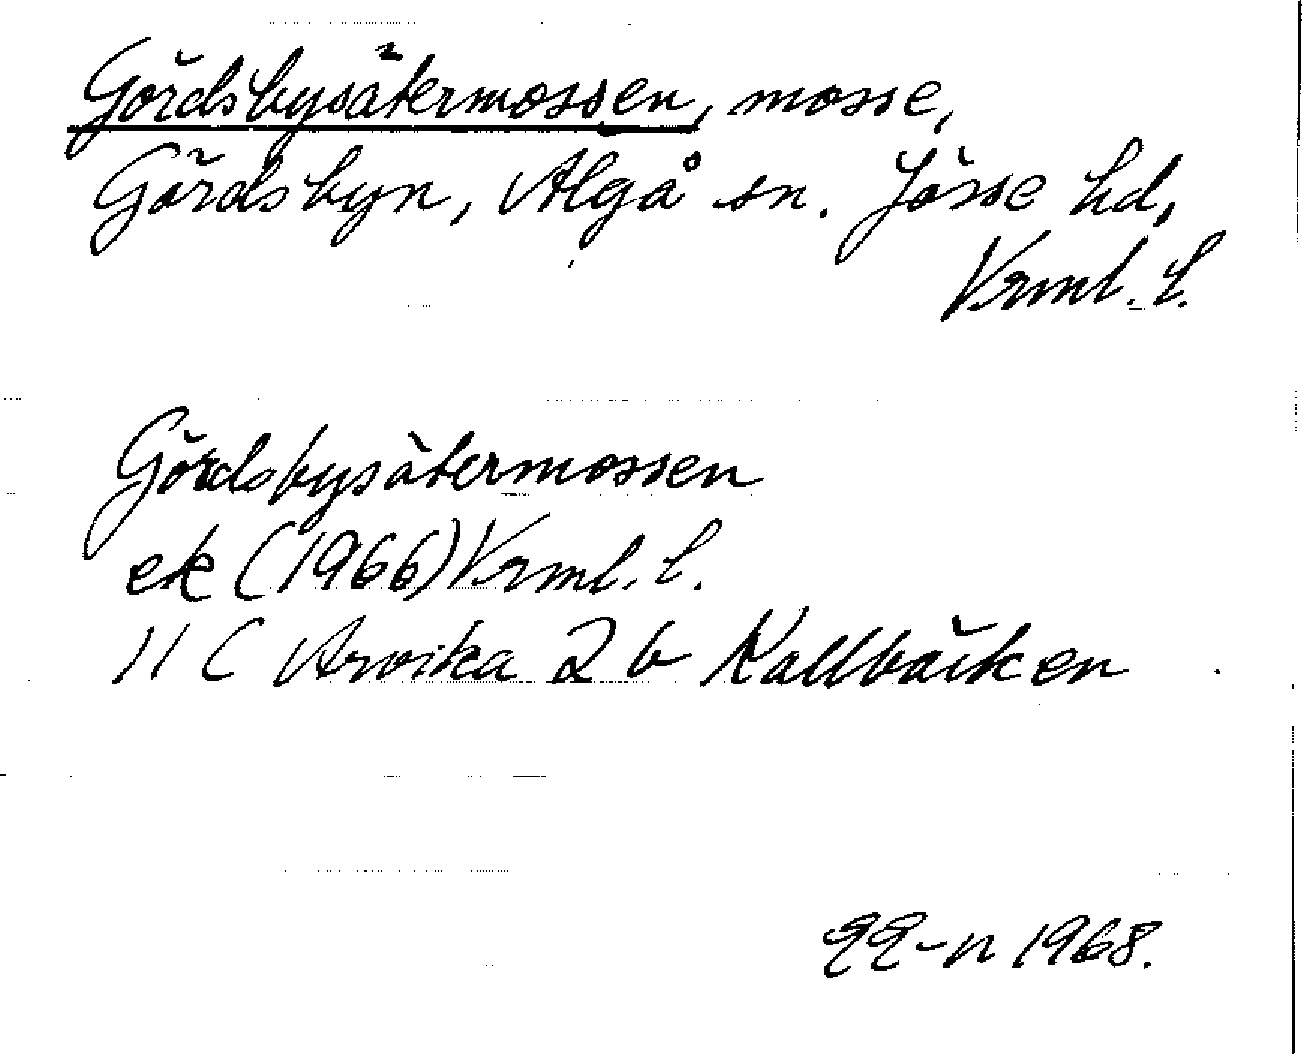 Gördsbysätermossen, mosse,
Gördsbyn, Älgå sn. Jösse hd,
Vrml. l.
Gördsbysätermossen
ek (1966) Vrml. l.
11 C Arvika 2 b Kallbäcken
EE-n 1968.